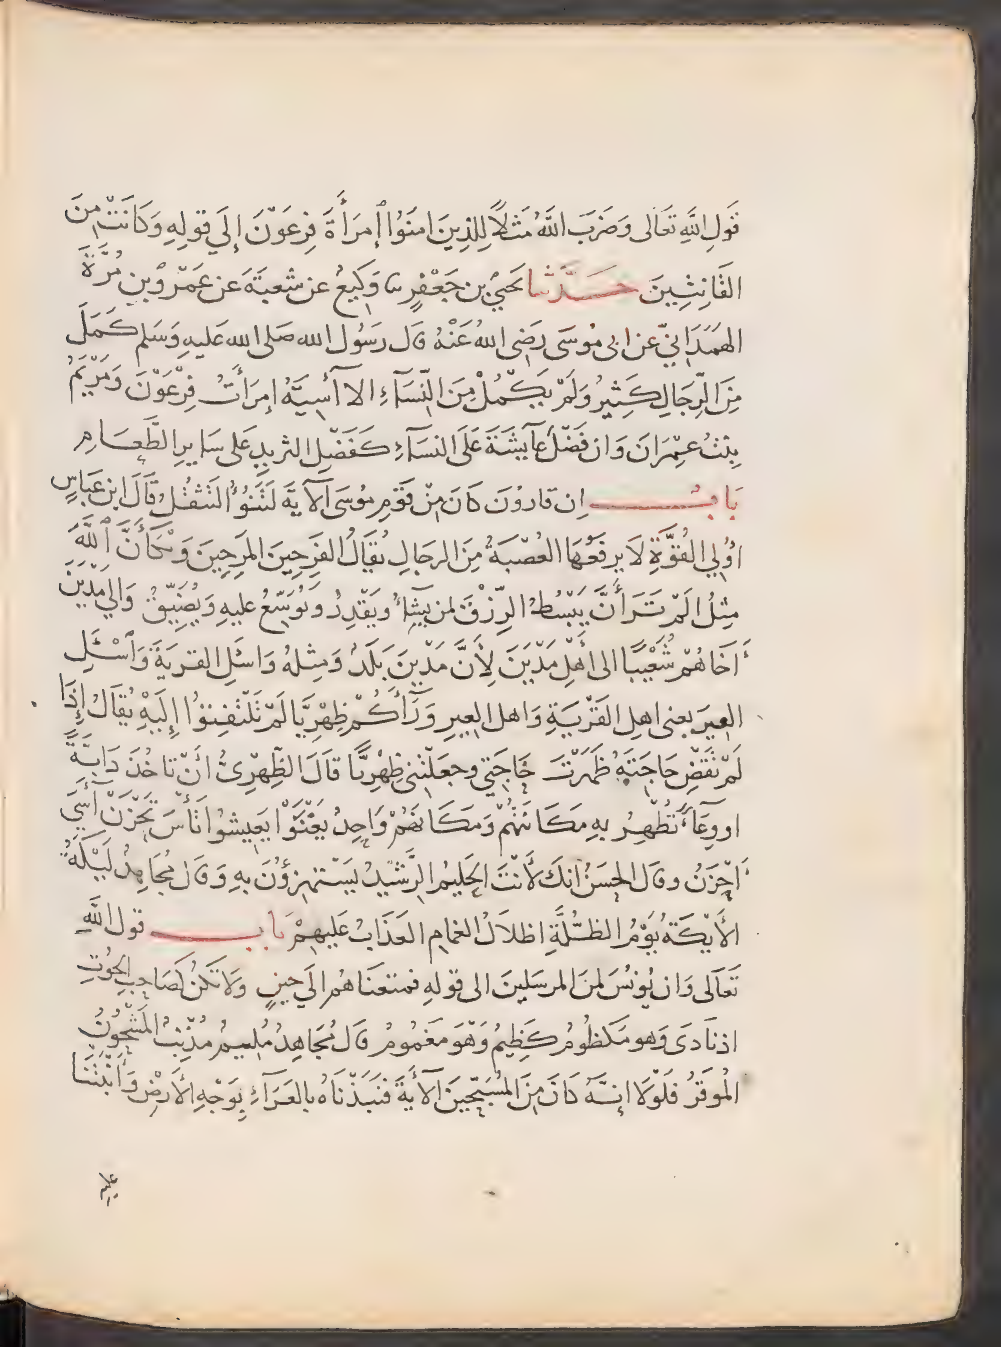 قَولِ اللَّهِ تَعَالَى وَضَرَبَ اللَّهُ مَثَلًا لِلذِينَ امَنُوا اِمرَأَةَ فِرعَوْنَ إِلَى قولِهِ وَكَانَتْ مِنَ
القَانِتِينَ حَدَّثَنا يَحيَى بن جَعْفَرٍ نا وَكِيعُ عن شعبَةَ عن عَمْرو بن مُرَّةَ
الهَمَدَانِيّ عن ابى مُوسَى رَضِى اللهُ عَنْهُ قال رَسُول الله صَلى الله عَليهِ وَسَلم كَمَلَ
مِنَ الرِّجَالِ كَثِيرُ وَلَمْ يَكْمُلْ مِنَ النِّسَآءِ الا آسِيَةُ إِمرَأَتُ فِرْعَوْنَ وَمَرْيَمُ
بِنْتُ عِمْرَانَ وَان فَضْلَ عَآيِشَةَ عَلَى النسَآءِ كَفَضْلِ الثريدِ عَلى سَايرِ الطَّعَامِ
بَابُ اِن قارُونَ كَانَ مِنْ قَوْمِ مُوسَى الآيَةَ لَتَنُؤُ لَتثقُلُ قَالَ ابن عَبَاسٍ
اوُلِي القُوَّةِ لَا يرفَعُهَا العُصْبَةُ مِنَ الرجَالِ يُقَالُ الفَرِحِينَ المَرِحِينَ وَيْكَأَنَّ اللَّهَ
مِثلُ الَمْ تَرَ أَنَّ يَبْسُطُ الرِّزْقَ لمن يَشَاءُ ويَقْدِرُ وَيُوَسِّعُ عليهِ وَيُضَيِّقُ وَالِى مَدْيَنَ
أَخَاهُمْ شُعَيْبًا الى أَهْلِ مَدْيَنَ لِأَنَّ مَدْيَنَ بَلَدُ وَمِثلهُ وَاسَئلِ القريَةَ وَاسْئَلِ
العِيرَ يعنِى اهلِ القَرْيَةِ وَاهل العِيرِ وَرَآأَكُمْ ظِهْرِيًّا لَمْ تَلْتَفِتُوا إِلَيْهِ يُقَالُ إِذَا
لَمْ تَقْضِ حَاجَتَهُ ظَهَرْتَ حَاجَتِي وجعَلْتَنِى ظِهْرِيًّا قَالَ الظِّهْرِىُّ أَنْ تاخُذَ دَابَّةً
اووِعَآءً تَظْهِرُ بهِ مَكَانَتُهُمْ وَمَكَانَهُمْ وَاحِدُ يَغْنَوْا يَعِيشُوا تَأْسَ تَحْزَنْ أَسَى
أَحْزَنُ وقال الحسَنُ إنكَ لَأَنْتَ الحَلِيمُ الرَّشيدُ يَسْتَهزِؤُنَ بهِ وَقالَ مُجَاهِدُ لَيْكَةُ
الأَيْكَةُ يَوْمُ الظُّلَّةِ اظلَالُ الغمامِ العَذَابَ عَليهِمْ بَابُ قول اللَّهِ
تَعَالَى وَان يُونُسَ لمنَ المرسَلينَ الى قولهِ فمتعنَاهُم الَي حِينٍ وَلَا تَكُنْ كَصَاحِبِ الحُوتِ
اذ نادَى وَهو مَكظُومُ كَظِيمُ وَهْوَ مَغمُومُ قال مُجَاهِدُ مُلِيمُ مُذْنِبُ المَشْحُونُ
المُوقَرُ فَلَوْلَا انَّهُ كَانَ مِنَ المُسَبِّحِينَ الآيَةَ فَنَبَذْنَاهُ بالعَرَآءِ بِوَجْهِ الأَرضِ وَأَنْبَتْنَا
عليه